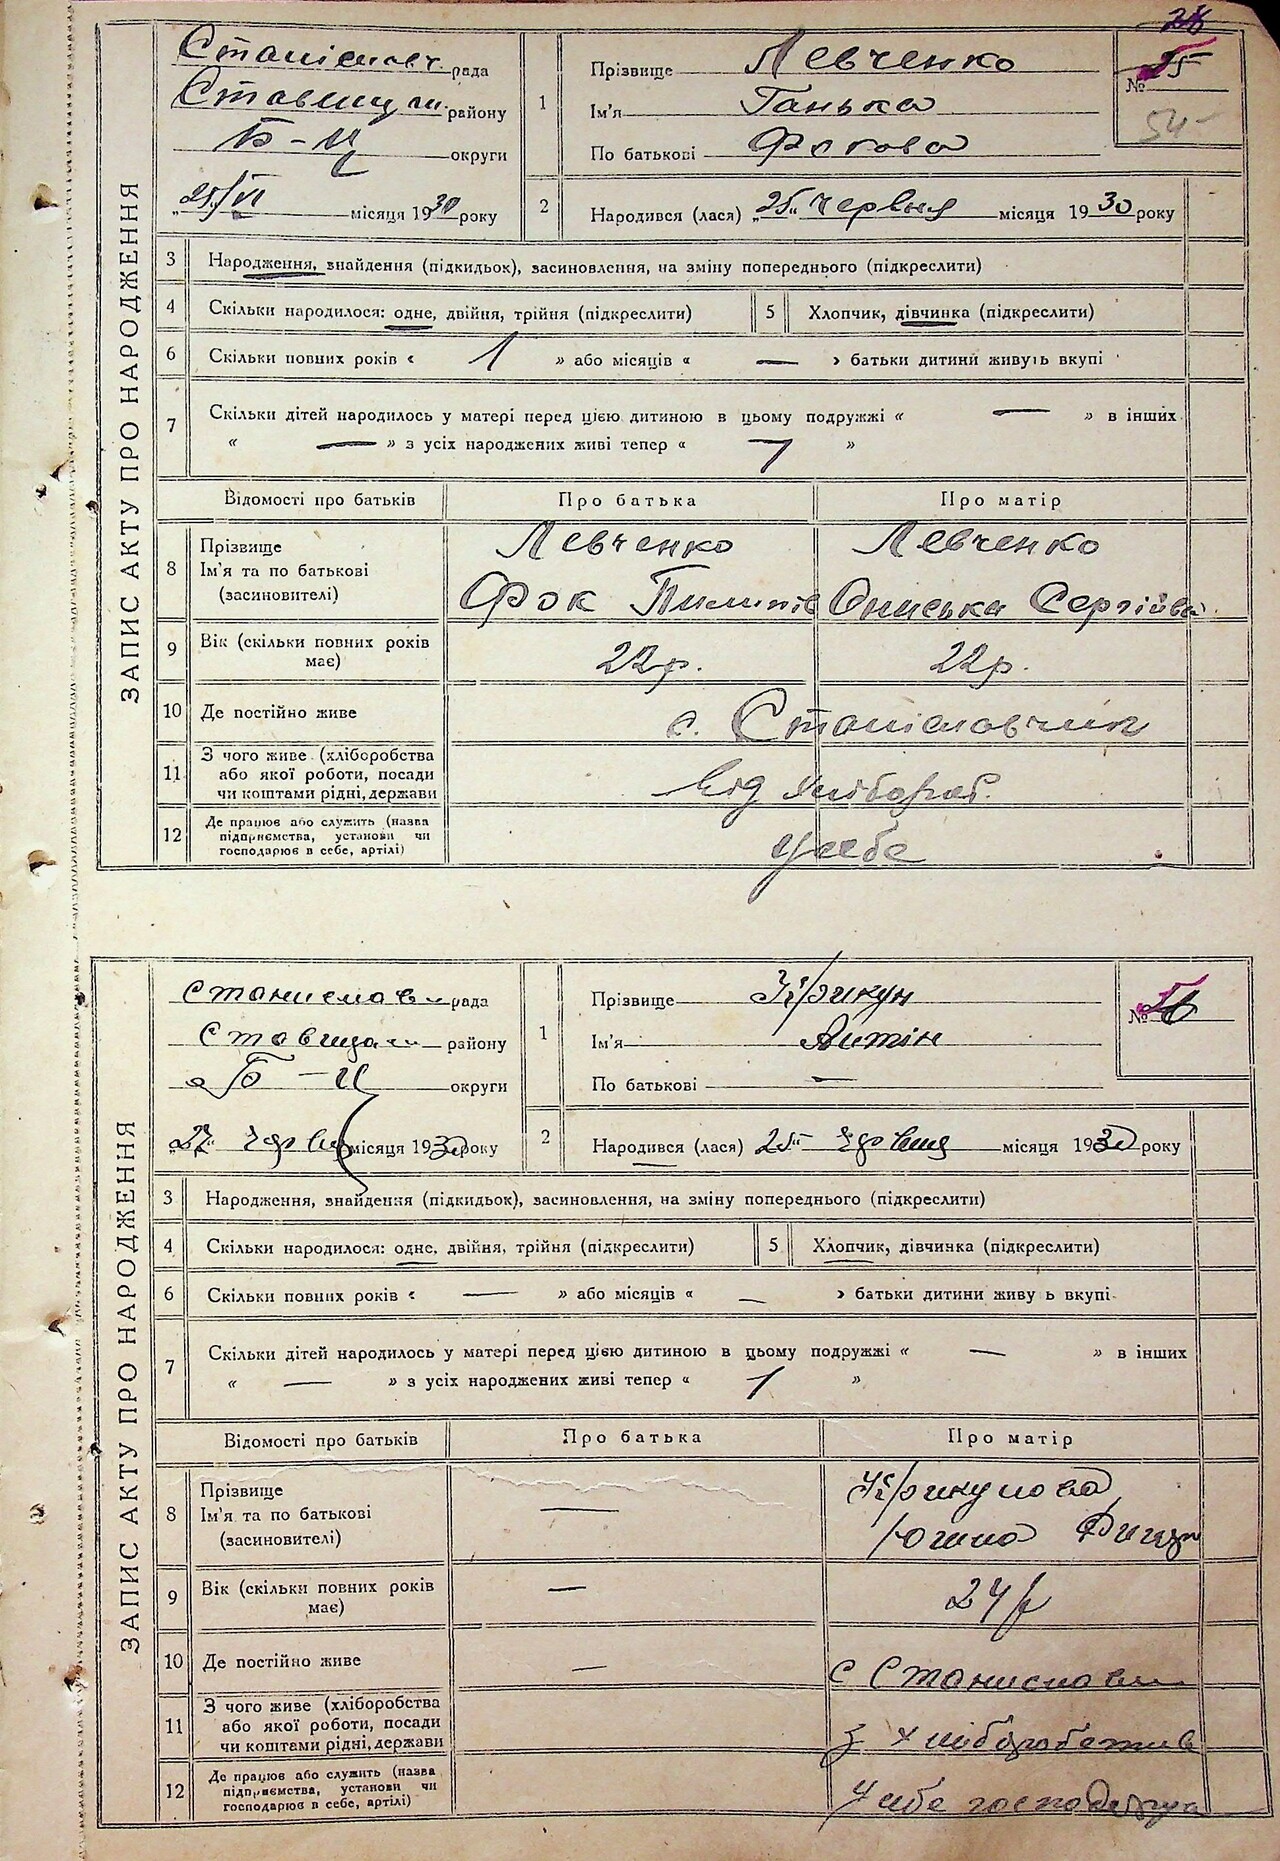 ЗАПИС АКТУ ПРО НАРОДЖЕННЯ
рада
району
Б-Ц округи
"25/VI місяця 1930 року
1
Прізвище Левченко
Ім'я Ганька
По батькові Фокова
№ 55
54
2
Народився (лася) "25" червня місяця 1930 року
3 Народження, знайдення (підкидьок), засиновлення, на зміну попереднього (підкреслити)
4 Скільки народилося: одне, двійня, трійня (підкреслити) 5 Хлопчик, дівчинка (підкреслити)
6 Скільки повних років « 1 » або місяців « — » батьки дитини живуть вкупі
7 Скільки дітей народилось у матері перед цією дитиною в цьому подружжі « — » в інших
« — » з усіх народжених живі тепер « 1 »
Відомості про батьків Про батька Про матір
8 Прізвище Левченко Левченко
Ім'я та по батькові
(засиновителі) Фок Пилипів Ониська Сергійва
9 Вік (скільки повних років має) 22р. 22р.
10 Де постійно живе с. Станіславчик
11 З чого живе (хліборобства
або якої роботи, посади Від хлібороб.
чи коштами рідні, держави
12 Де працює або служить (назва
підприємства, установи чи у себе
господарює в себе, артілі)
ЗАПИС АКТУ ПРО НАРОДЖЕННЯ
рада
району
Б-Ц округи
"27" місяця 1930 року
1
Прізвище Крикун
Ім'я Антін
По батькові —
№ 56
2
Народився (лася) 25" червня місяця 1930 року
3 Народження, знайдення (підкидьок), засиновлення, на зміну попереднього (підкреслити)
4 Скільки народилося: одне, двійня, трійня (підкреслити) 5 Хлопчик, дівчинка (підкреслити)
6 Скільки повних років « — » або місяців « — » батьки дитини живу ь вкупі
7 Скільки дітей народилось у матері перед цією дитиною в цьому подружжі « — » в інших
« — » з усіх народжених живі тепер « 1 »
Відомості про батьків Про батька Про матір
8 Прізвище Крикунова
Ім'я та по батькові —
(засиновителі)
9 Вік (скільки повних років має) — 24р
10 Де постійно живе — с
11 З чого живе (хліборобства
або якої роботи, посади з
чи коштами рідні, держави
12 Де працює або служить (назва
підприємства, установи чи У себе
господарює в себе, артілі)